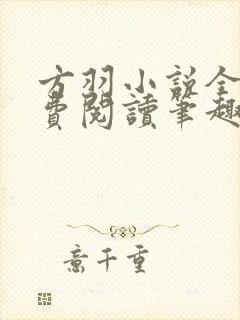 方羽小説全
費閱讀筆趣
意千重